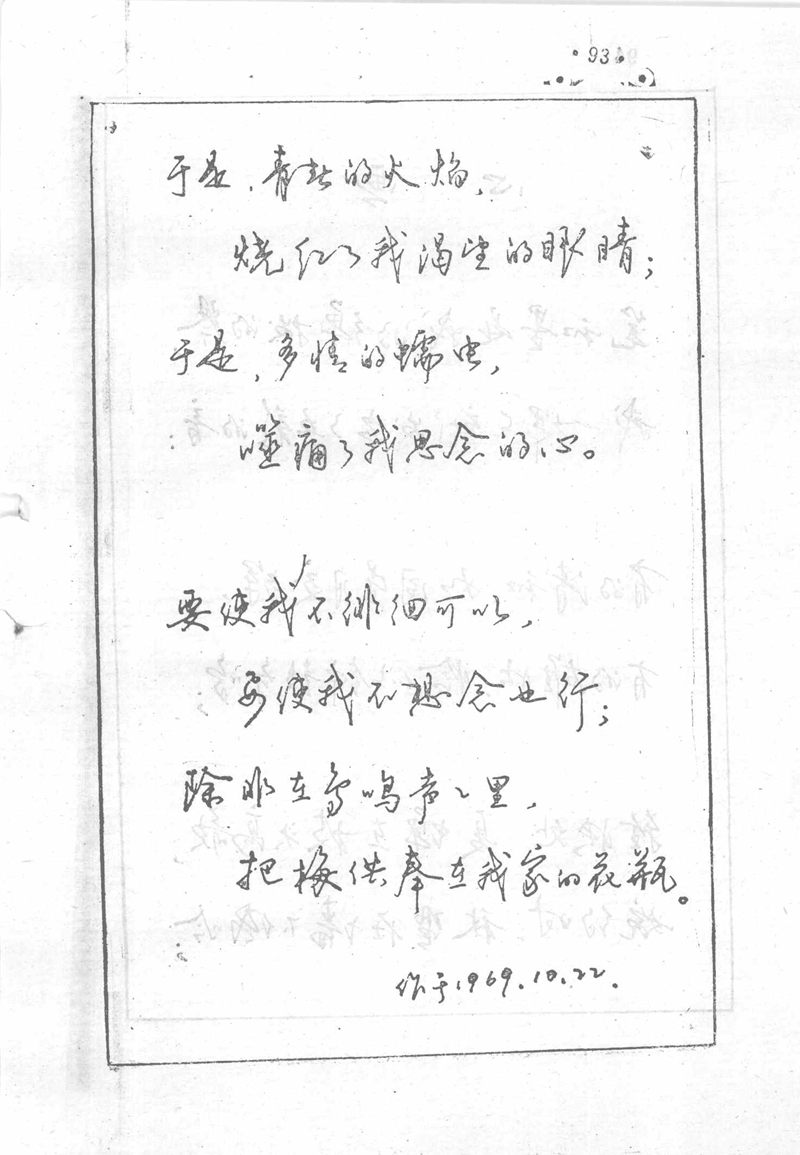 93
于是，青春的火焰，
烧红了我渴望的眼睛；
于是，多情的蠕虫，
噬痛了我思念的心。
要使我不徘徊可以，
要使我不想念也行；
除非在鸟鸣声声里，
把梅供奉在我家的花瓶。
作于1969.10.22.